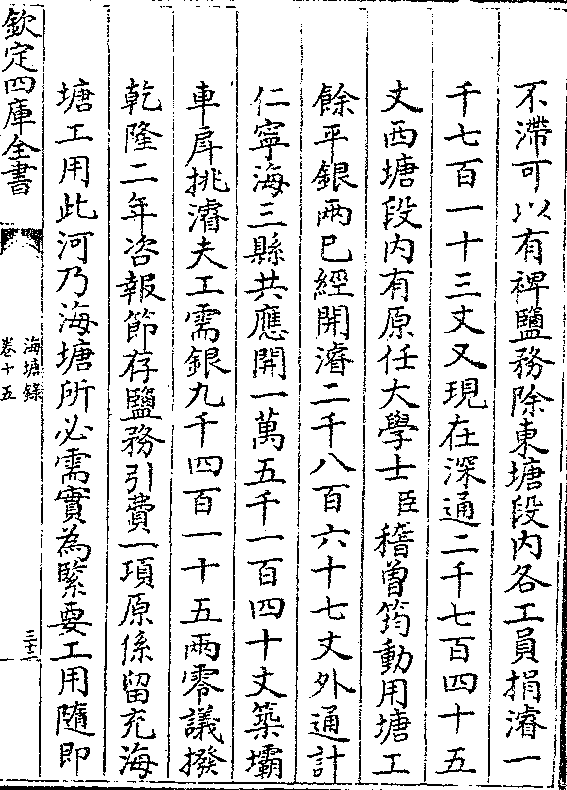 不滯可以有裨鹽務除東塘段内各工員捐濬一
千七百一十三丈又現在深通二千七百四十五
丈西塘段内有原任大學士臣稽曾筠動用塘工
餘平銀兩已經開濬二千八百六十七丈外通計
仁寧海三縣共應開一萬五千一百四十丈築壩
車戽挑濬夫工需銀九千四百一十五兩零議撥
乾隆二年咨報節存鹽務引費一項原係留充海
塘工用此河乃海塘所必需實為緊要工用隨即
欽定四庫全書
海塘錄
卷十五
三十二